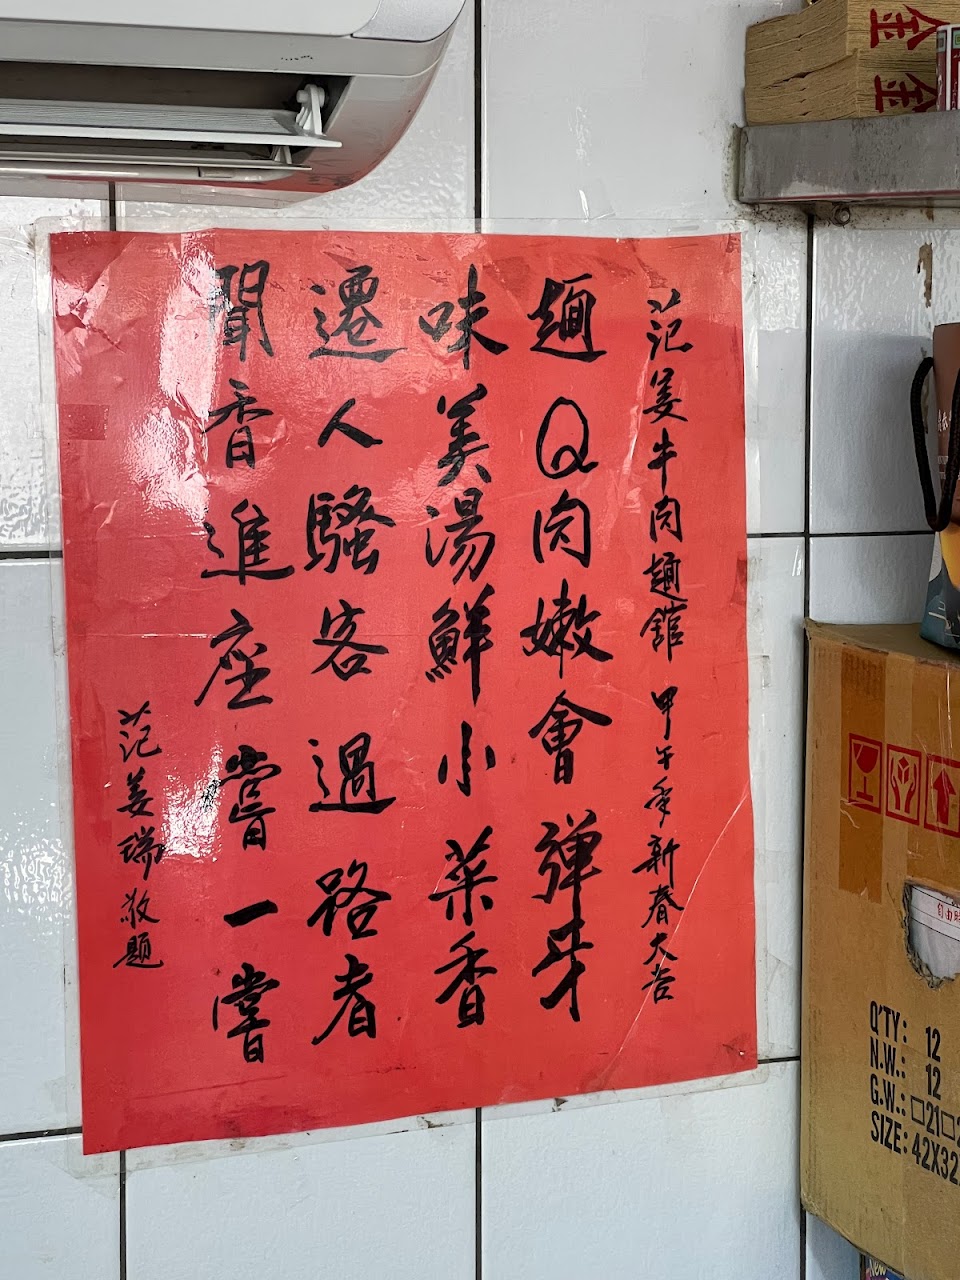 范姜牛肉麵館 甲午年新春大吉
麵Q肉嫩會彈牙
味美湯鮮小菜香
遷人騷客過路者
聞香進座嘗一嘗
范姜瑞敬題
金
金
自由
Q'TY: 12
N.W.: 12
G.W.: □21□
SIZE: 42X32
New